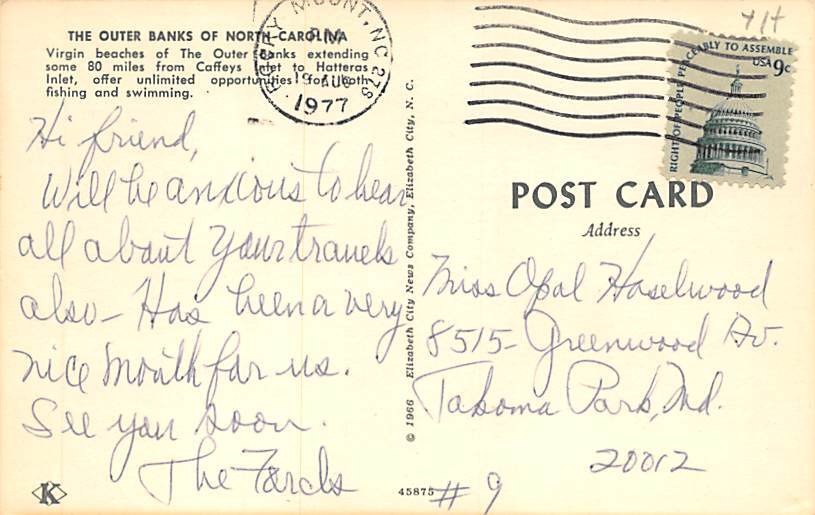 THE OUTER BANKS OF NORTH CAROLINA
Virgin beaches of The Outer Banks extending
some 80 miles from Caffeys Inlet to Hatteras
Inlet, offer unlimited opportunities for both
fishing and swimming.
ROCKY MOUNT, NC 278
PM
19 AUG
1977
RIGHT OF PEOPLE PEACEABLY TO ASSEMBLE
USA 9c
Hi friend,
Will be anxious to hear
all about your travels
also - Has been a very
nice month for us.
See you soon.
The
K
© 1966 Elizabeth City News Company, Elizabeth City, N. C.
45875
POST CARD
Address
Miss Opal Haselwood
8515- Greenwood Av.
Takoma Park, Md.
20012
# 9